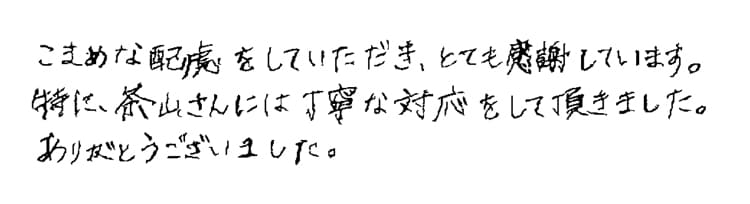 こまめな配慮をしていただき、とても感謝しています。
特に、茶山さんには丁寧な対応をして頂きました。
ありがとうございました。